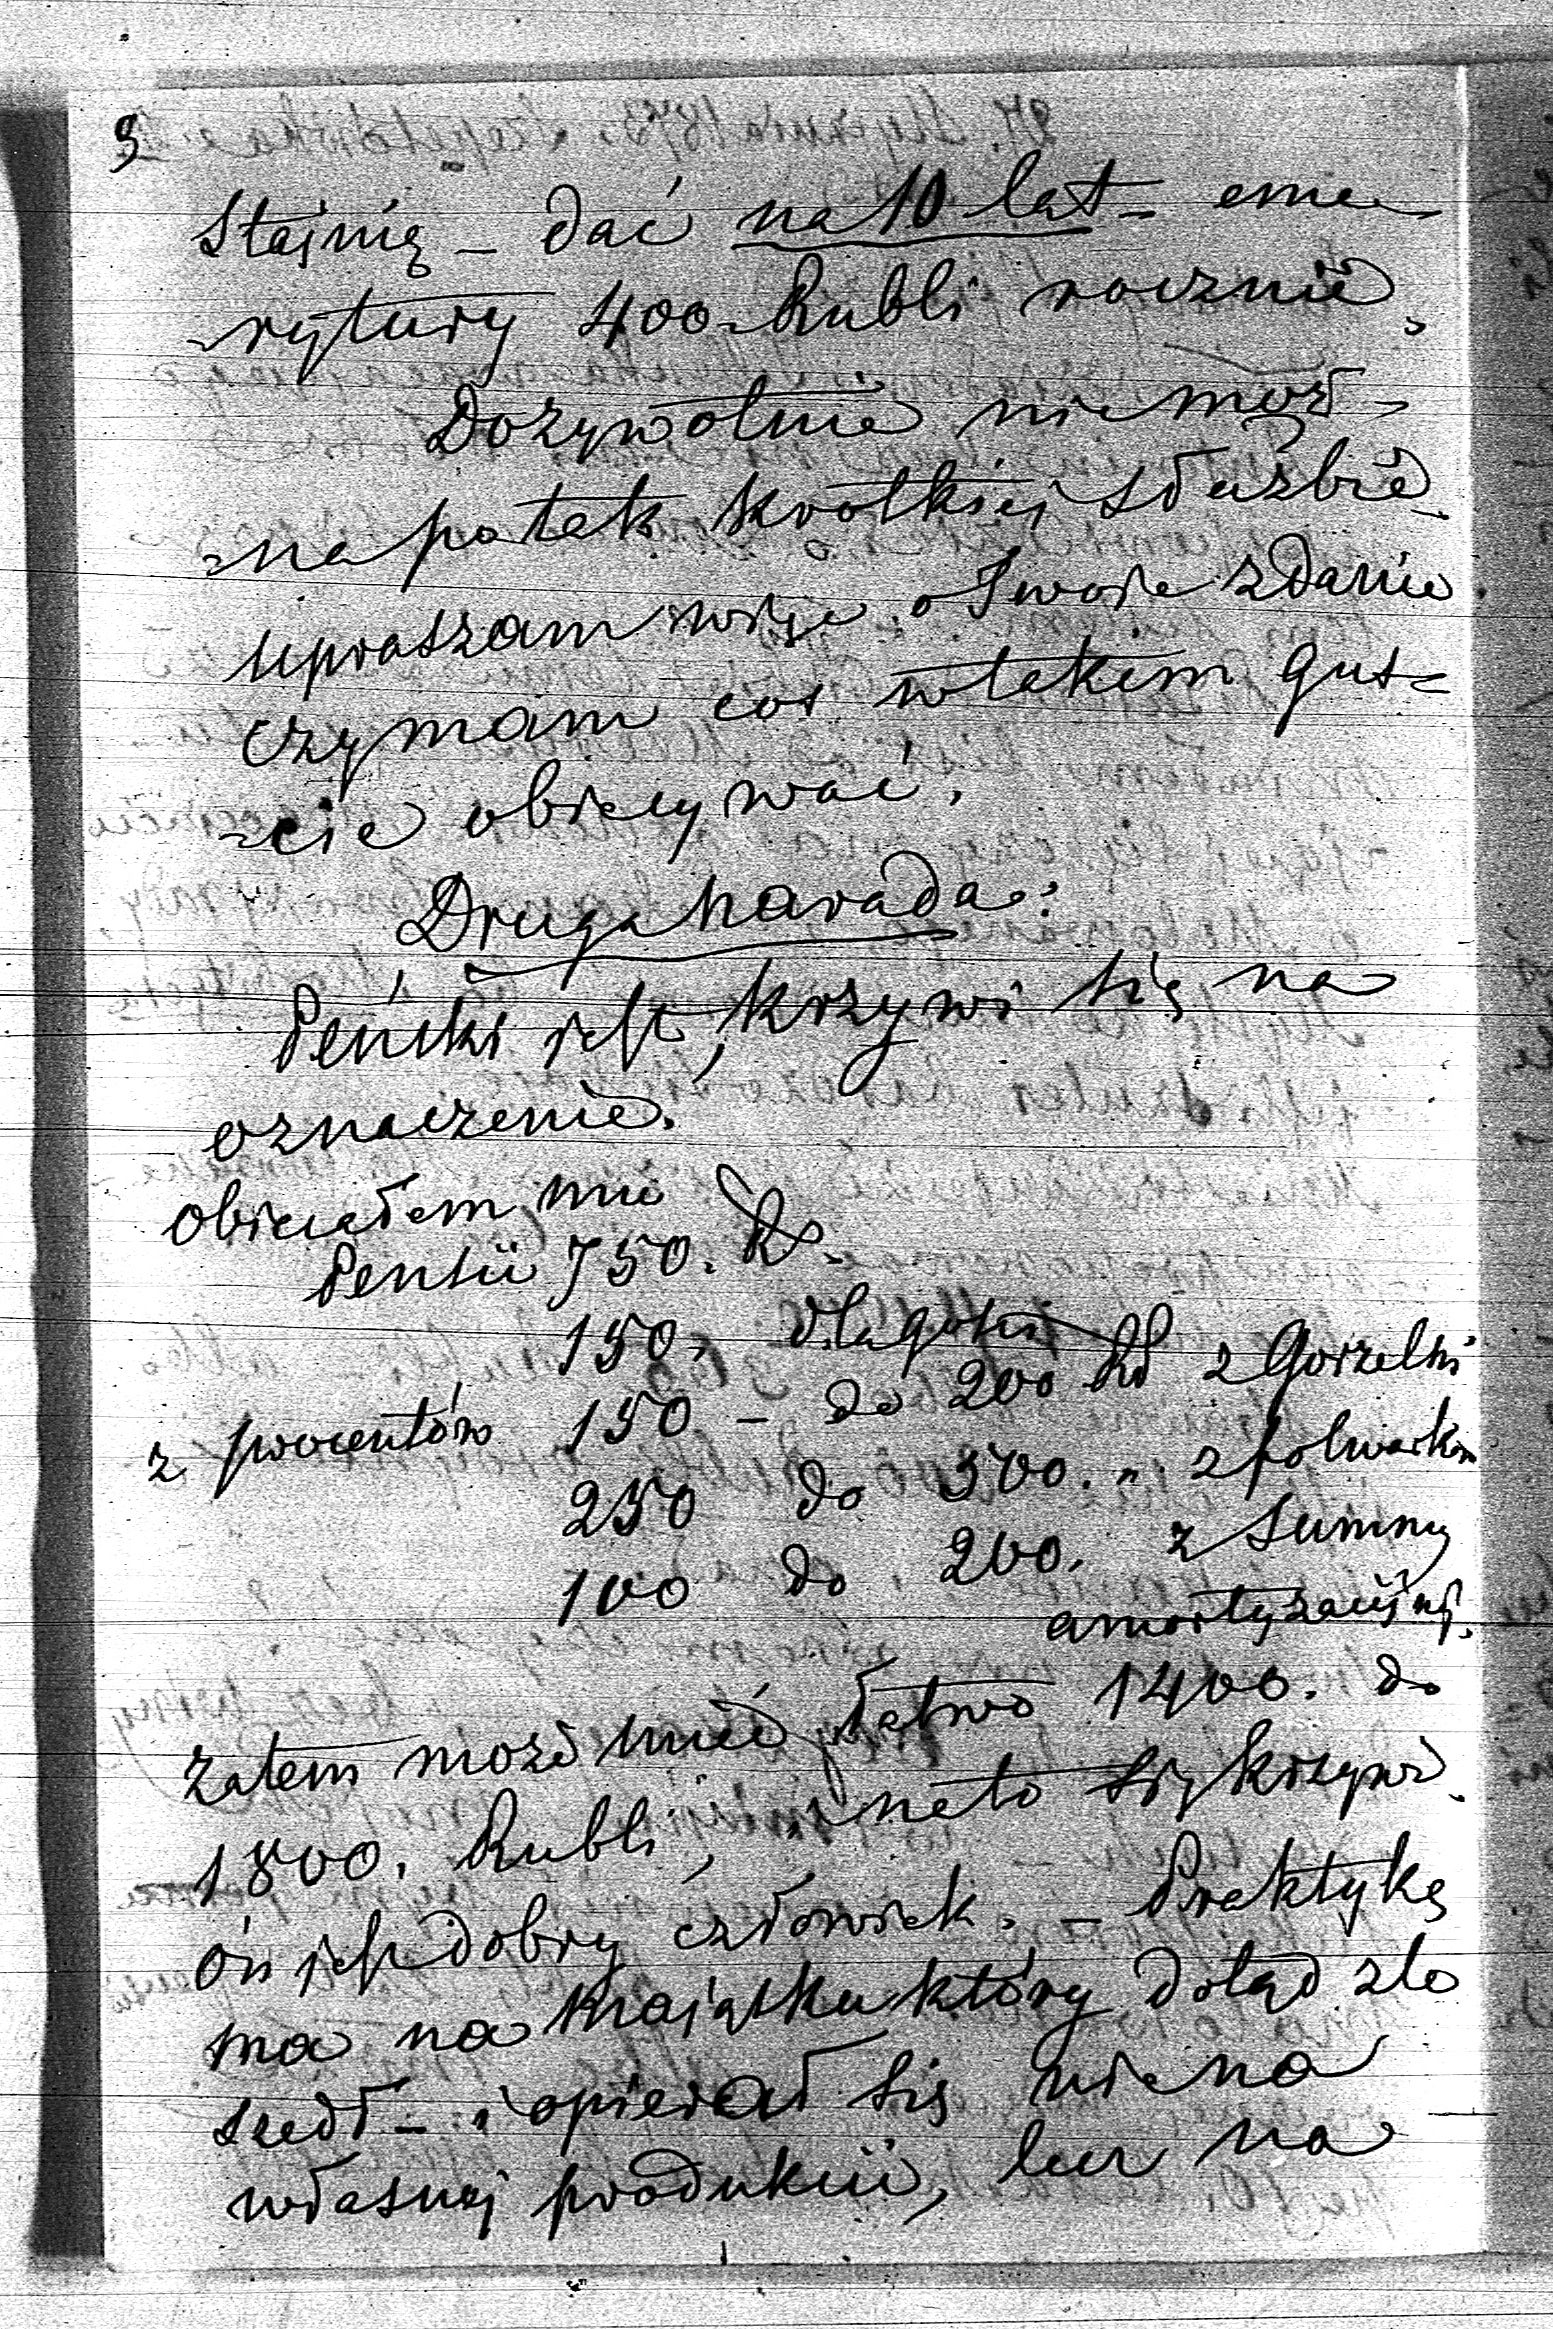 3
Stajnią – dać na 10 lat – eme-
-rytury 400 Rubli rocznie.
Dożywotnie nie moż-
-na po tak krótkiej służbie
upraszam więc o Twoje zdanie
czy mam coś w takim guś-
-cie obiecywać.
Druga narada:
Peński jest, krzywi się na
oznaczenie.
obiecałem mu
Pensii 750. Rs.
150. dla
z procentów 150 – do 200 Rs z Gorzelni
250 do 500. " z folwarków
100 do 200. z Summy
amortyzacyjnej.
zatem może mieć łatwo 1400. do
1800. Rubli, i na to się krzywi.
on jest dobry człowiek. – Praktykę
ma na Majątku który dotąd zle
szedł – i opierał się nie na
własnej produkcii, lecz na